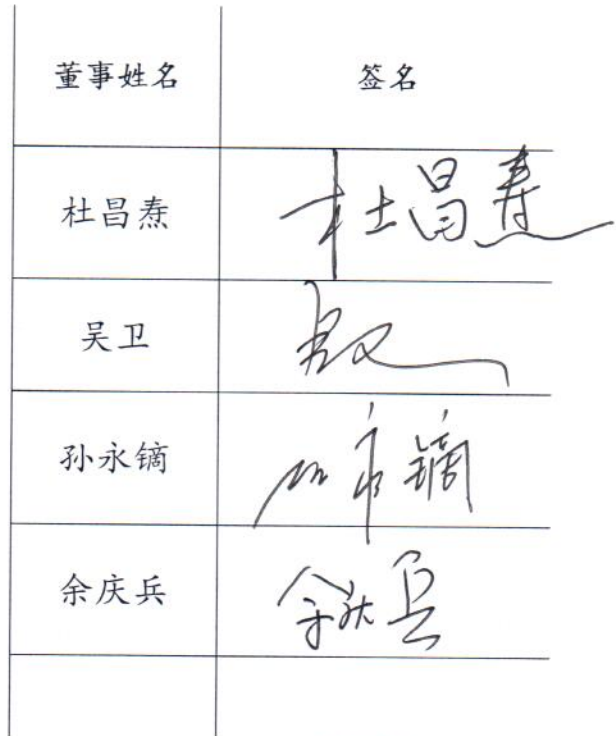 董事姓名 签名
杜昌焘 杜昌焘
吴卫
孙永镝 孙永镝
余庆兵 余庆兵